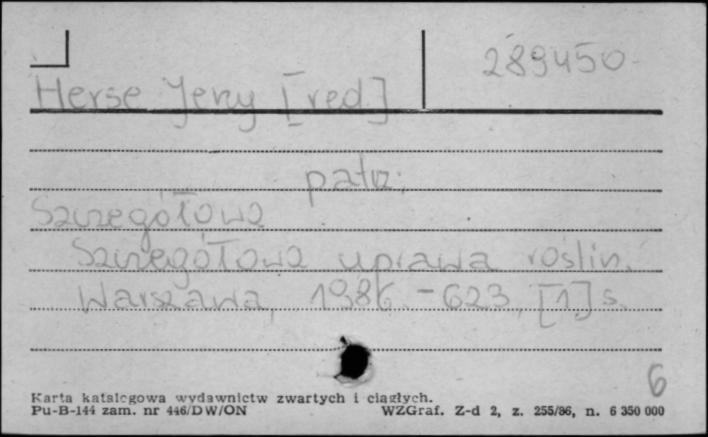 289450
Herse Jerzy [red.]
patrz:
Szczegółowa
Szczegółowa uprawa roślin.
Warszawa, 1986. - 623, [1] s.
6
Karta katalogowa wydawnictw zwartych i ciągłych.
Pu-B-144 zam. nr 446/DW/ON WZGraf. Z-d 2, z. 255/86, n. 6 350 000